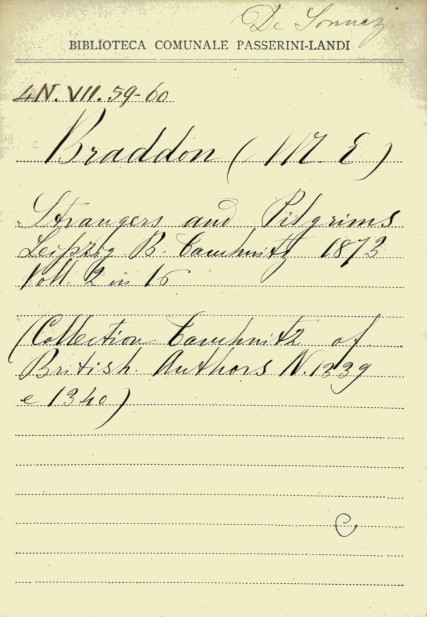 De Sonnaz
BIBLIOTECA COMUNALE PASSERINI-LANDI
4N. VII. 59-60
Braddon (M E)
Strangers and Pilgrims
Leipzig B. Tauchnitz 1873
Voll. 2 in 16
(Collection Tauchnitz of
British Authors N. 1339
e 1340)
C